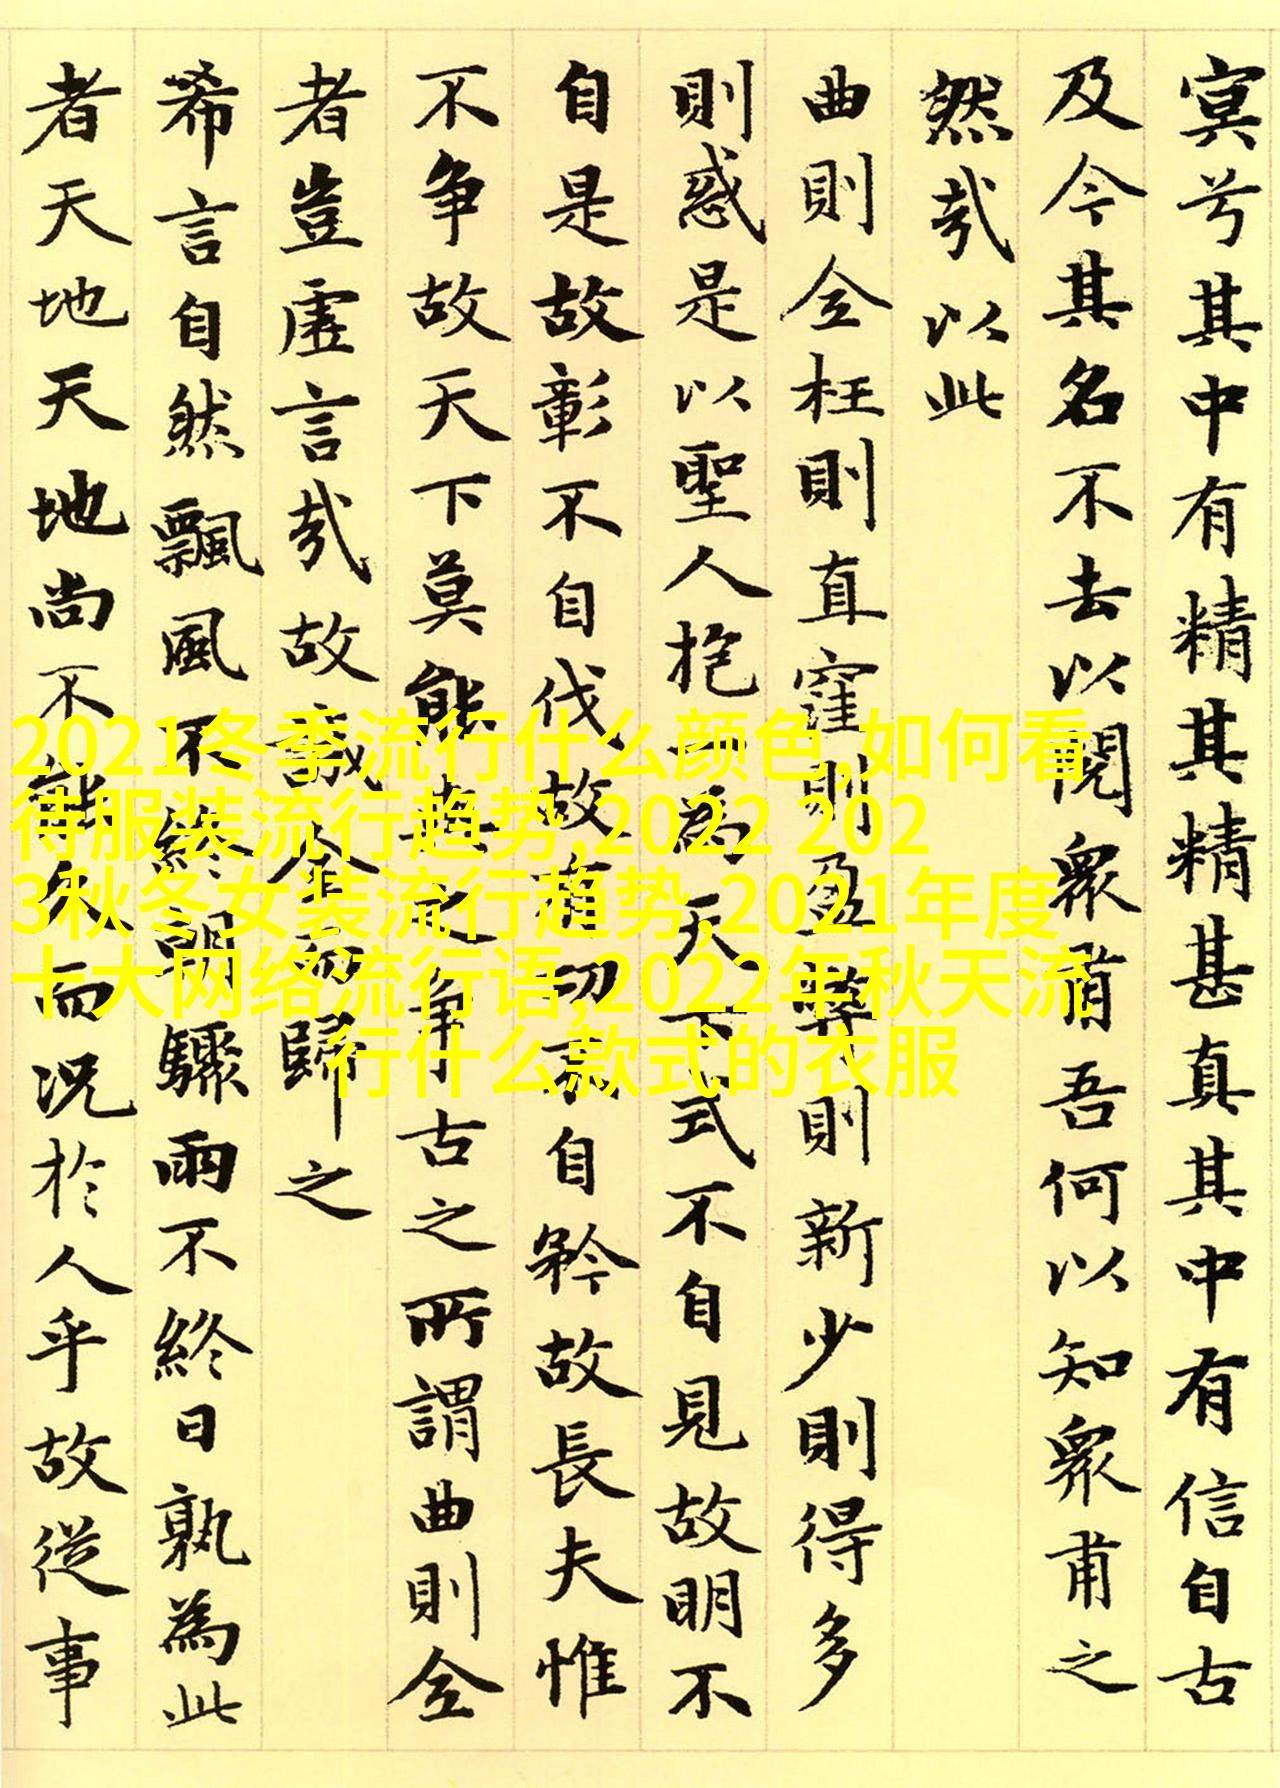 冥兮其中有精其精甚真其中有信自古
及今其名不去以閱衆甫吾何以知衆甫之
然哉以此
曲則全枉則直窪則盈弊則新少則得多
則惑是以聖人抱一為天下式不自見故明不
自是故彰不自伐故有功不自矜故長夫惟
不争故天下莫能與之争古之所謂曲則全
者豈虛言哉故誠全而歸之
希言自然飄風不終朝驟雨不終日孰為此
者天地天地尚不能久而況於人乎故從事
2021冬季流行什么颜色,如何看
待服装流行趋势,2022 202
3秋冬女装流行趋势,2021年度
十大网络流行语,2022年秋天流
行什么款式的衣服